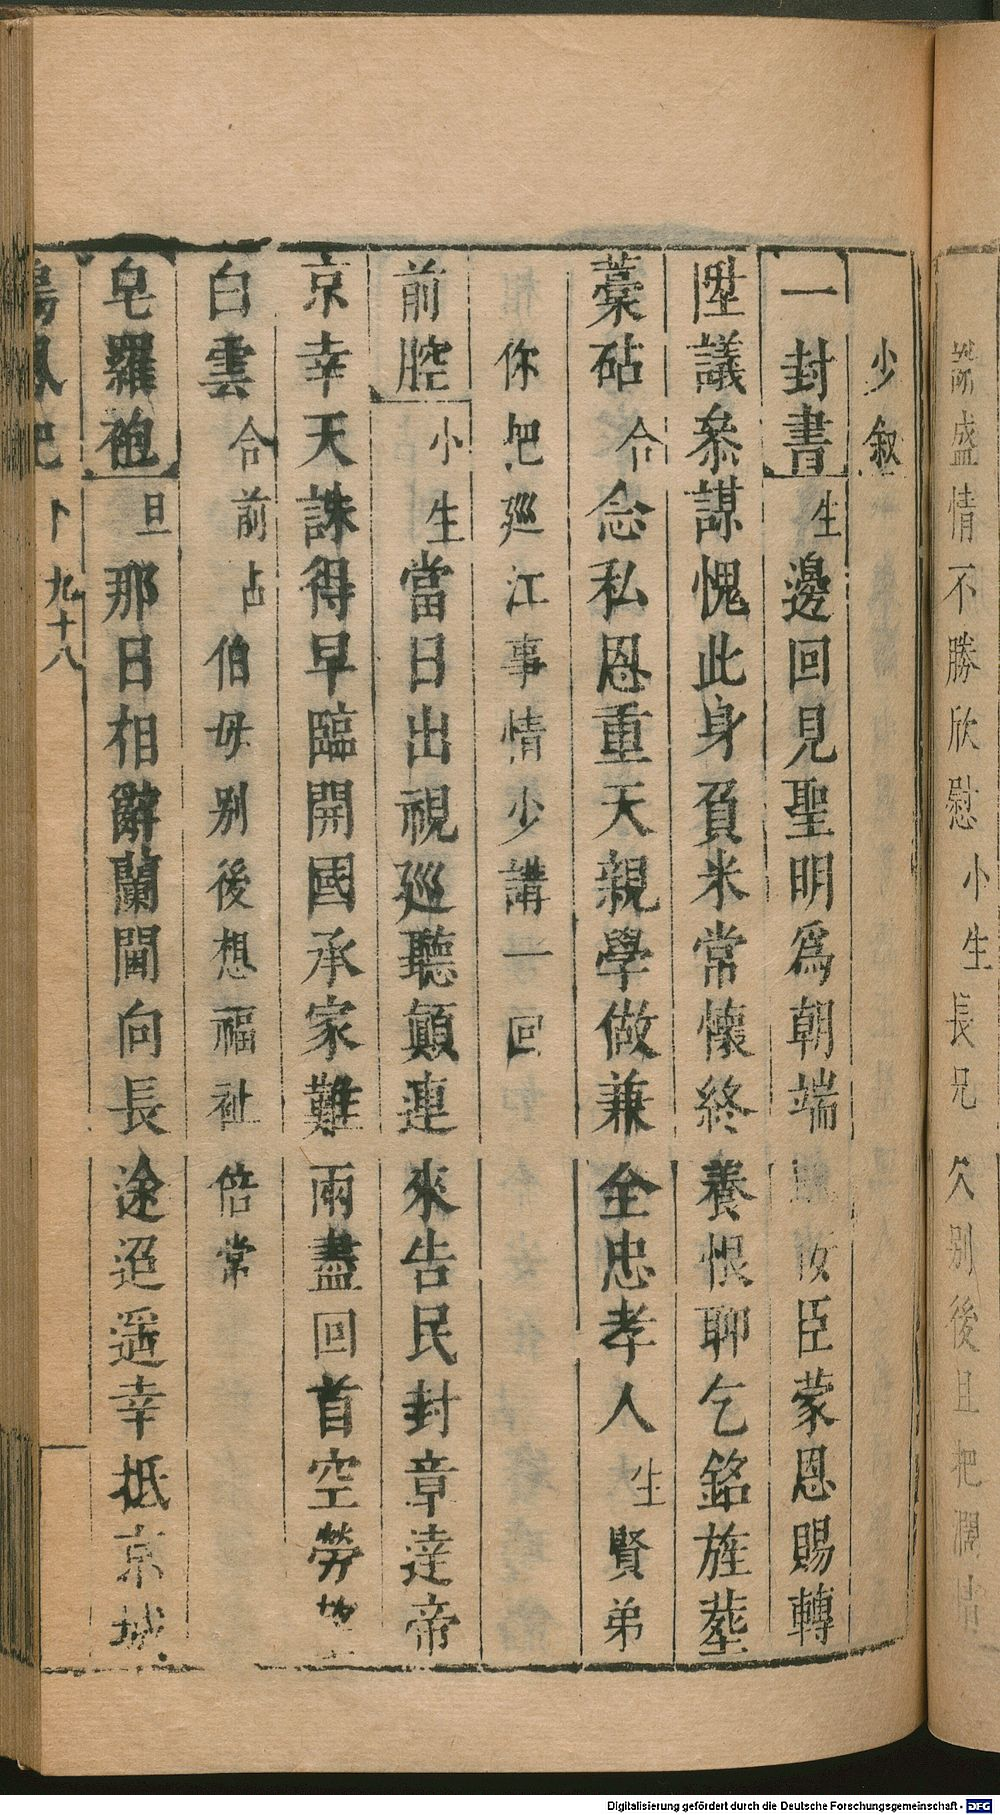 盛情不勝欣慰小生長兄久別後且把
少叙
一封書生邊回見聖明爲朝端汝臣蒙恩賜轉
陞議叅謀愧此身負米常懷終養恨聊乞銘旌塟
藁砧合念私恩重天親學做兼全忠孝人生賢弟
你把廵江事情少講一回
前腔小生當日出視廵聽顛連來告民封章達帝
京幸天誅得早臨開國承家難兩盡回首空勞
白雲合前占伯母别後想福祉倍常
皂羅袍旦那日相辭蘭闈向長途迢遥幸抵京城
卜九十八
Digitalisierung gefördert durch die Deutsche Forschungsgemeinschaft - DFG